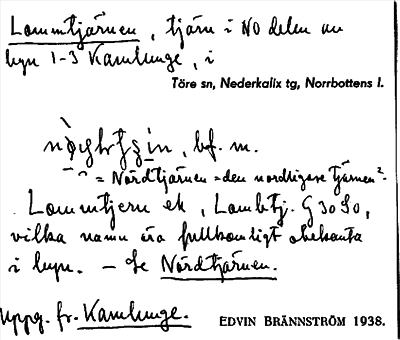 Lommtjärnen, tjärn i NO delen av
byn 1-3 Kamlunge, i
Töre sn, Nederkalix tg, Norrbottens l.
bf. m.
= Nordtjärnen = den nordligare tjärnen".
Lommtjern ek, Lombtj. G 30 SO,
vilka namn äro fullkomligt obekanta
i byn. – Se Nordtjärnen.
Uppg. fr. Kamlunge.
EDVIN BRÄNNSTRÖM 1938.